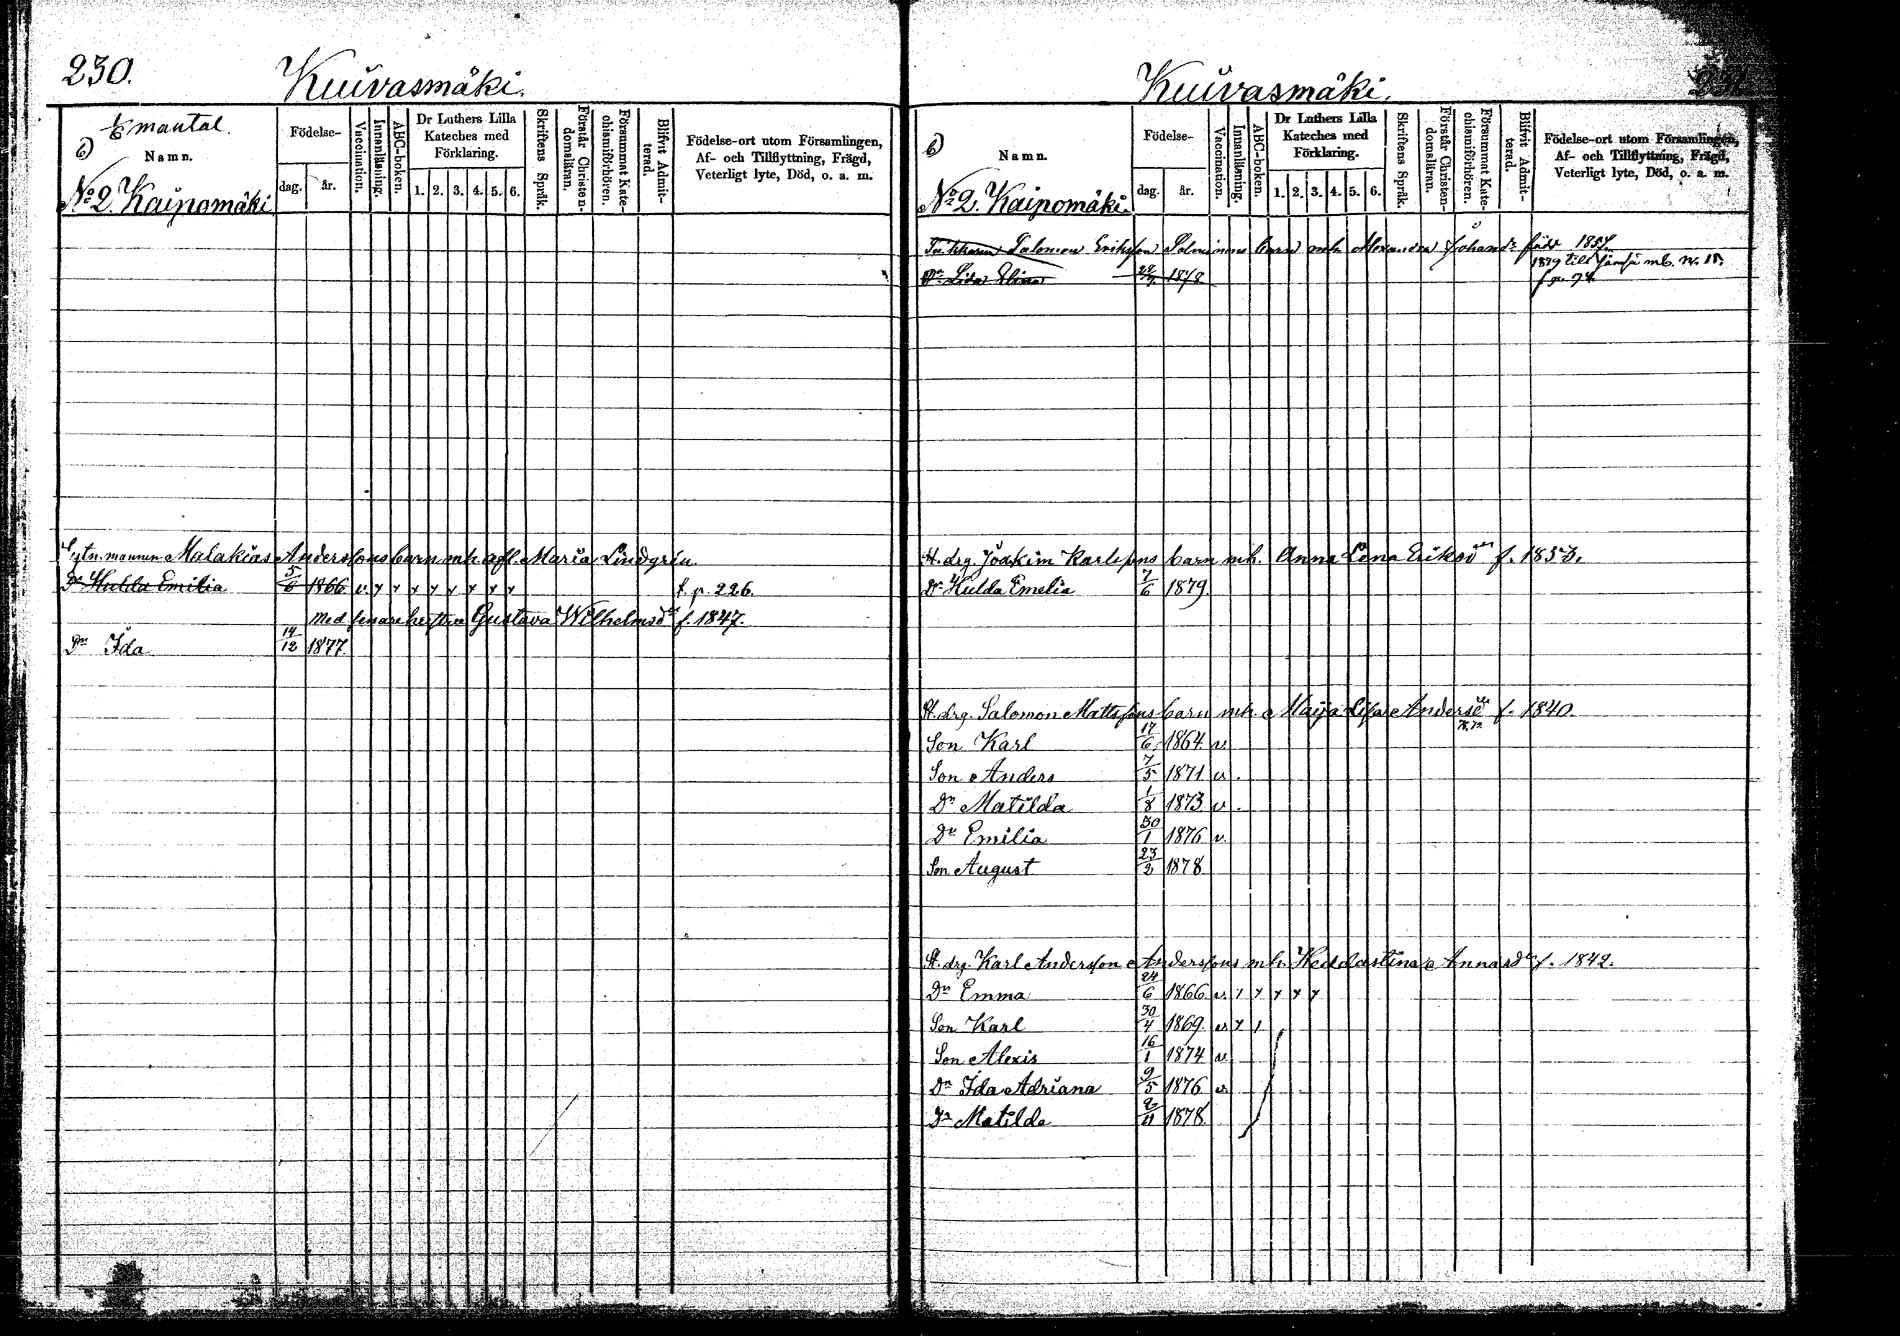 230.
Kuivasmäki.
1/6 mantal.
6)
Namn.
No 2. Kaipomäki
Födelse-
dag.
år.
Vaccination.
Innanläsning.
ABC-boken.
Dr Luthers Lilla
Kateches med
Förklaring.
1. 2. 3. 4. 5. 6.
Skriftens Språk.
Förstår Christen-
domsläran.
Försummat Kate-
chismiförhören.
Blifvit Admit-
terad.
Födelse-ort utom Församlingen,
Af- och Tillflyttning, Frägd,
Veterligt lyte, Död, o. a. m.
Malakias Anderssons barn mh. afl. Maria Lindgrén.
Dr Hulda Emilia 5/6 1866 v. f. p. 226.
Med senare hustru Gustava Wilhelmsdr f. 1847.
Dr Ida 14/12 1877.
231
Kuivasmäki.
6)
Namn.
No 2. Kaipomäki.
Födelse-
dag.
år.
Vaccination.
Innanläsning.
ABC-boken.
Dr Luthers Lilla
Kateches med
Förklaring.
1. 2. 3. 4. 5. 6.
Skriftens Språk.
Förstår Christen-
domsläran.
Försummat Kate-
chismiförhören.
Blifvit Admit-
terad.
Födelse-ort utom Församlingen,
Af- och Tillflyttning, Frägd,
Veterligt lyte, Död, o. a. m.
Salomon Eriksson barn mh Alexandra Johandr född 1857.
1879 till Jämsä mb. N. 18.
Dr Lida Elina 1878
St. drg. Joakim Karlssons barn mh. Anna Lena Eriksdr f. 1853.
Dr Hulda Emelia 7/6 1879.
St. drg. Salomon Mattssons barn mh. Maija Lisa Andersdr f. 1840.
Son Karl 17/6 1864 v.
Son Anders 7/5 1871 v.
Dr Matilda 1/8 1873 v.
Dr Emilia 30/1 1876 v.
Son August 23/2 1878
St. drg. Karl Andersson Anderssons mh. Heddastina Annasdr f. 1842.
Dr Emma 24/6 1866 v.
Son Karl 30/4 1869. v.
Son Alexis 16/1 1874 v.
Dr Ida Adriana 9/5 1876 v.
Dr Matilda 2/11 1878.